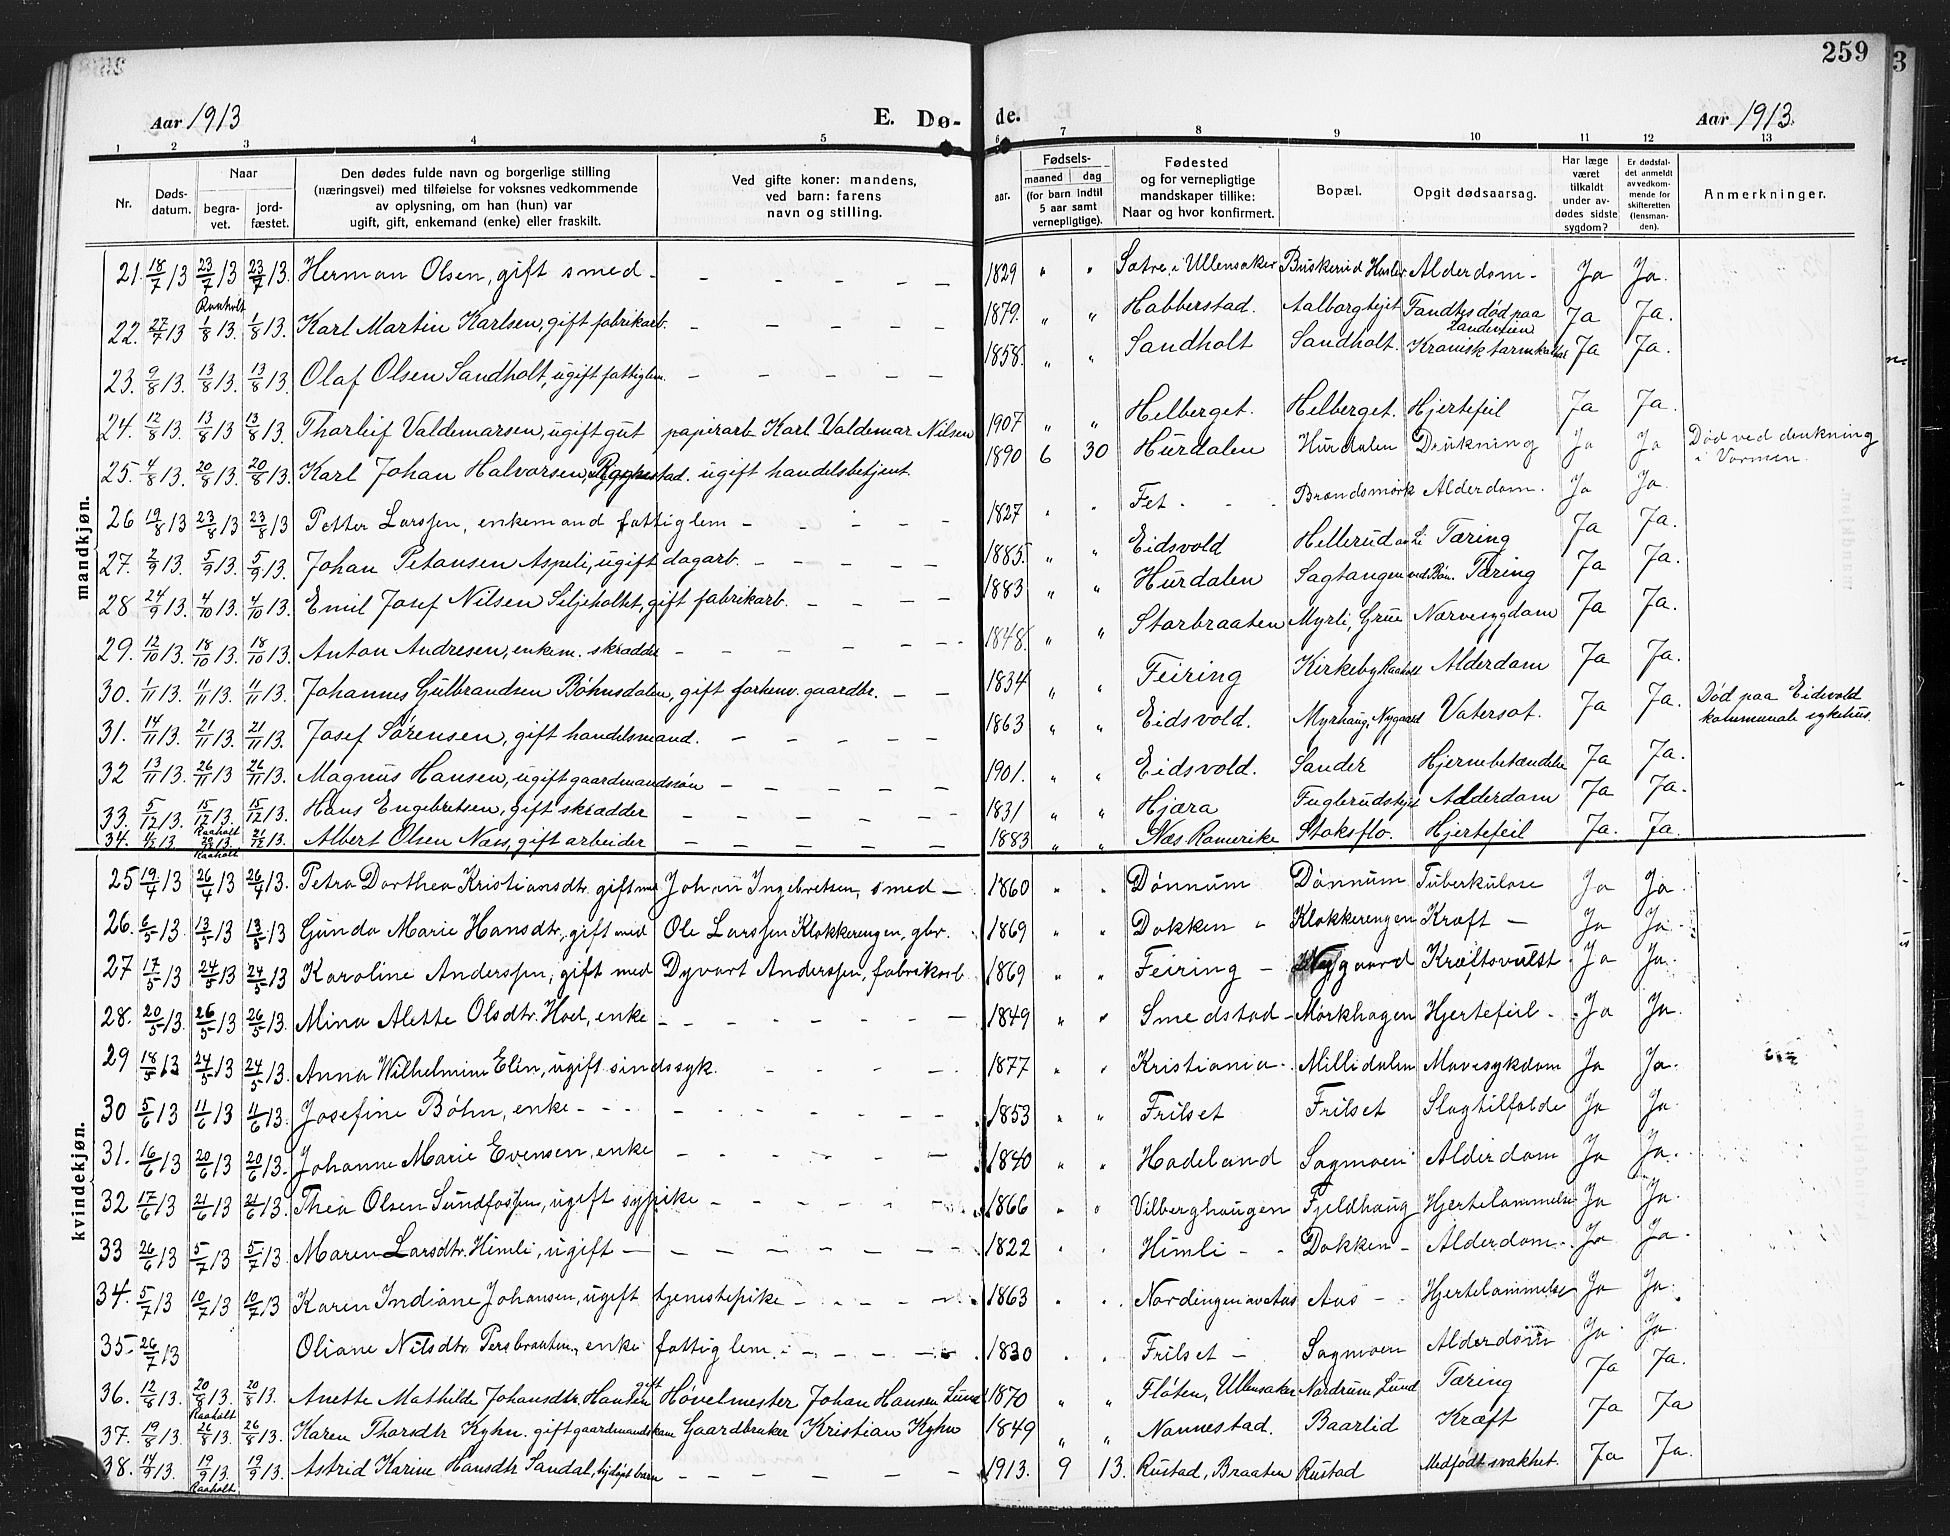 259
Aar 1913 E. Dø- de. Aar 1913.
1 2 3 4 5 6 7 8 9 10 11 12 13
Nr. Døds-datum. Naar begra-vet. jord-fæstet. Den dødes fulde navn og borgerlige stilling (næringsvei) med tilføielse for voksnes vedkommende av oplysning, om han (hun) var ugift, gift, enkemand (enke) eller fraskilt. Ved gifte koner: mandens, ved barn: farens navn og stilling. aar. Fødsels- maaned dag (for barn indtil 5 aar samt vernepligtige). Fødested og for vernepligtige mandskaper tillike: Naar og hvor konfirmert. Bopæl. Opgit dødsaarsag. Har læge været tilkaldt under av-dødes sidste sygdom? Er dødsfal-det anmeldt av vedkom-mende for skifteretten (lensman-den). Anmerkninger.
mandkjøn.
21. 18/7 13 23/7 13 23/7 13. Herman Olsen, gift smed - 1829 " " Sætre i Ullensaker Buskerud Alderdom - Ja Ja.
Raaholt
22. 27/7 13 1/8 13. 1/8 13. Karl Martin Karlsen, gift fabrikarb. 1879. " " Habberstad. Fandtes død paa Ja Ja.
23. 9/8 13. 13/8 13. 13/8 13. Olaf Olsen Sandholt, ugift fattiglem. 1858. " " Sandholt Sandholt. Kronisk Ja Ja.
24. 12/8 13. 13/8 13 13/8 13. Thorleif Valdemarsen, ugift gut papirarb Karl Valdemar Nilsen 1907 " " Helberget. Helberget. Hjertefeil Ja Ja.
25. 4/8 13. 20/8 13 20/8 13. Karl Johan Halvorsen, ugift handelsbetjent 1890 6 30 Hurdalen Hurdalen Drukning Ja Ja Død ved drukning i Vormen.
26 19/8 13 23/8 13 23/8 13 Petter Larssen, enkemand fattiglem - 1827 " " Fet - Brandsmørk Alderdom. Ja Ja.
27. 2/9 13. 5/9 13. 5/9 13. Johan Petansen Aspeli, ugift dagarb. 1885. " " Eidsvold Hellerud Tæring Ja Ja.
28 24/9 13. 4/10 13. 4/10 13. Emil Josef Nilsen Seljeholtet, gift fabrikarb. 1883 " " Hurdalen Sagtangen ved Bøn. Tæring Ja Ja.
29. 12/10 13. 18/10 13. 18/10 13. Anton Andresen, enkem. skrædder 1848. " " Storbraaten Myrli, Grue Nærvesygdom Ja Ja.
30. 1/11 13. 11/11 13. 11/11 13. Johannes Gulbrandsen Bøhnsdalen, gift forhenv. gaardbr. 1834 " " Feiring Kirkeby Raaholt Alderdom Ja Ja.
31. 14/11 13. 21/11 13 21/11 13. Josef Sørensen, gift handelsmand. 1863 " " Eidsvold. Myrhaug, Nygaard Vatersot. Ja Ja. Død paa Eidsvold kommunale sykehus.
32 13/11 13. 26/11 13 26/11 13. Magnus Hansen, ugift gaardmandssøn 1901. " " Eidsvold. Sander Hjernebetændelse Ja Ja.
33. 5/12 13. 15/12 13. 15/12 13. Hans Engebretsen, gift skrædder 1831 " " Hjæra Alderdom Ja Ja.
Raaholt
34. 13. 13. 21/12 13. Albert Olsen Næs, gift arbeider 1883 " " Næs Romerike Stoksflo. Hjertefeil Ja. Ja.
Raaholt
kvindekjøn.
25 19/4 13 26/4 13 26/4 13. Petra Dorthea Kristiansdtr. gift med Johan Ingebretsen, smed - 1860 " " Dønnum Dønnum Tuberkulose Ja Ja.
26. 6/5 13. 13/5 13. 13/5 13 Gunda Marie Hansdtr., gift med Ole Larssen Klokkerengen, gbr. 1869 " " Dokken " Klokkerengen Kræft - Ja Ja.
27 17/5 13 24/5 13 24/5 13. Karoline Anderssen, gift med Dyvart Anderssen, fabrikarb 1869 " " Feiring - Nygaard Kræftsvulst Ja Ja.
28. 20/5 13. 26/5 13 26/5 13. Mina Alette Olsdtr. Hoel, enke 1849 " " Smedstad - Mørkhagen Hjertefeil - Ja Ja.
29 18/5 13 24/5 13 24/5 13. Anna Wilhelmine Elin, ugift sindssyk. 1877 " " Kristiania - Millidalen Mavesykdom Ja Ja.
30 5/6 13 11/6 13 11/6 13. Josefine Bøhn, enke - 1853 " " Frilset Frilset Slagtilfælde Ja Ja.
31. 16/6 13 20/6 13 20/6 13. Johanne Marie Evensen, enke 1840 " " Hadeland Sagmoen Alderdom Ja Ja.
32 17/6 13 21/6 13 21/6 13. Thea Olsen Sundfossen, ugift sypike 1866 " " Vilberghaugen Fjeldhaug Hjertelammelse Ja Ja.
33 26/6 13 5/7 13 5/7 13. Maren Larsdtr. Himli, ugift - 1822 " " Himli - Dokken - Alderdom - Ja Ja.
34. 5/7 13 10/7 13 10/7 13 Karen Indiane Johansen, ugift tjenestepike 1863 " " Nordengen av Aas Aas - Hjertelammelse Ja Ja.
35- 26/7 13 Oliane Nilsdtr. Persbraaten, enke fattiglem. 1830 " " Frilset - Sagmoen Alderdom Ja. Ja.
36. 12/8 13. 20/8 13. 20/8 13. Anette Mathilde Johansdtr. Hansen gift Høvelmester Johan Hansen Lund 1870 " " Fløten, Ullensaker Nordrum Lund Tæring Ja Ja.
Raaholt
37. 19/8 13. 26/8 13. 26/8 13. Karen Thorsdtr Kyhn. gift gaardmandskone Gaardbruker Kristian Kyhn 1849 " " Nannestad. Baarlid Kræft Ja Ja
38. 14/9 13. 19/9 13. 19/9 13. Astrid Karine Hansdtr Sandal, barn 1913. 9 13. Rustad, Braaten Rustad Medfødt svakhet. Ja Ja.
Raaholt